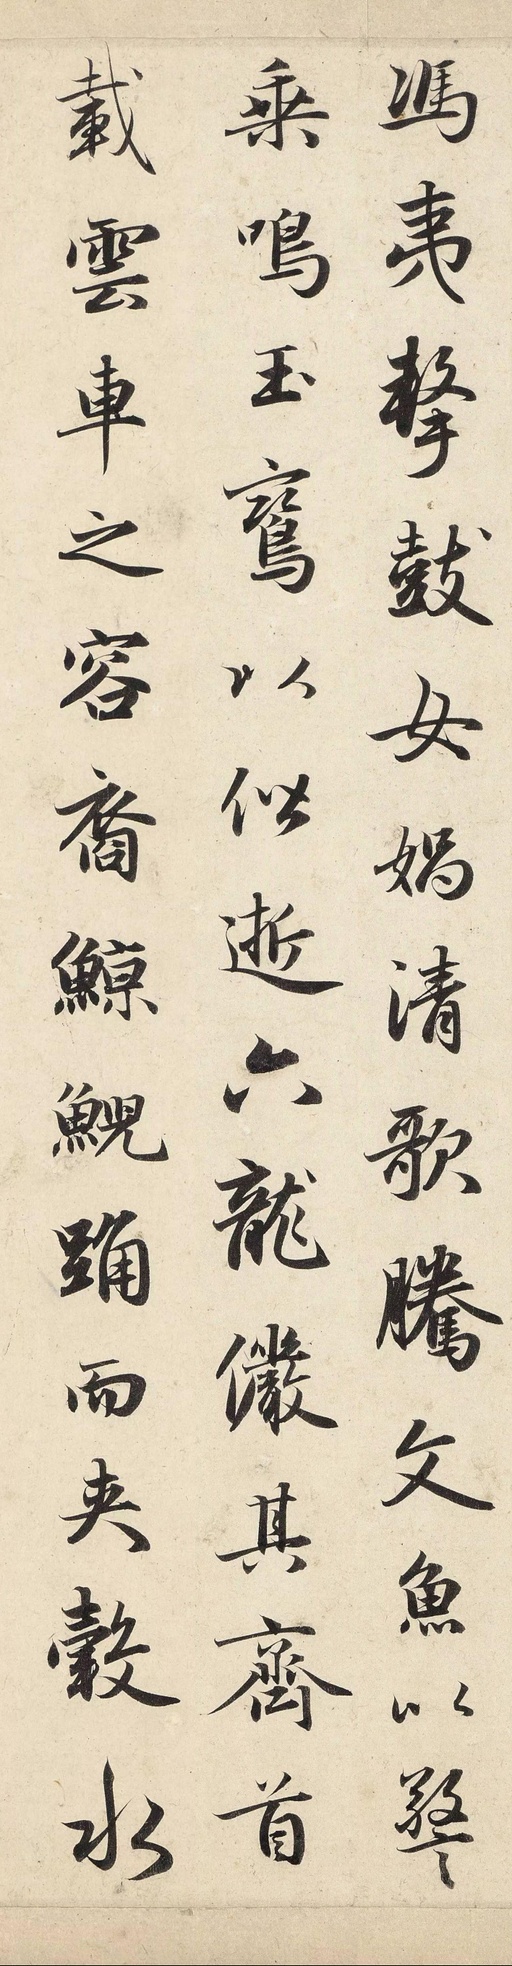 馮夷擊鼓女媧清歌騰文魚以警
乘鳴玉鸞以偕逝六龍儼其齊首
載雲車之容裔鯨鯢踊而夾轂水